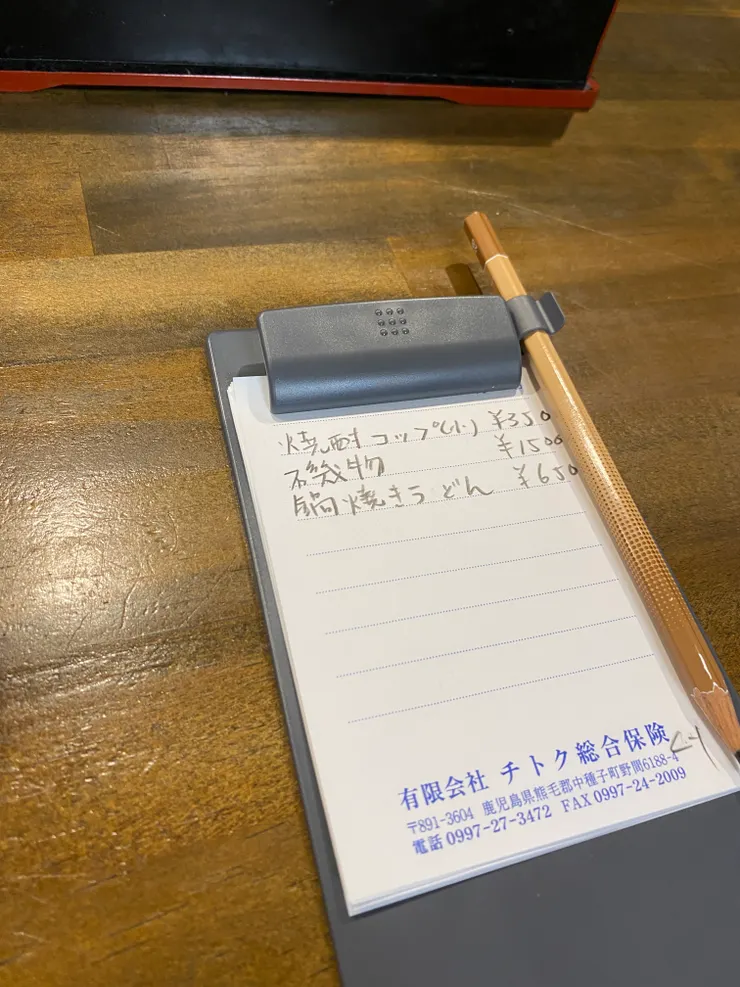 焼酎コップ(小) ¥350
磯物 ¥1500
鍋焼きうどん ¥650
有限会社 チトク総合保険
〒891-3604 鹿児島県熊毛郡中種子町野間6188-4
電話 0997-27-3472 FAX 0997-24-2009